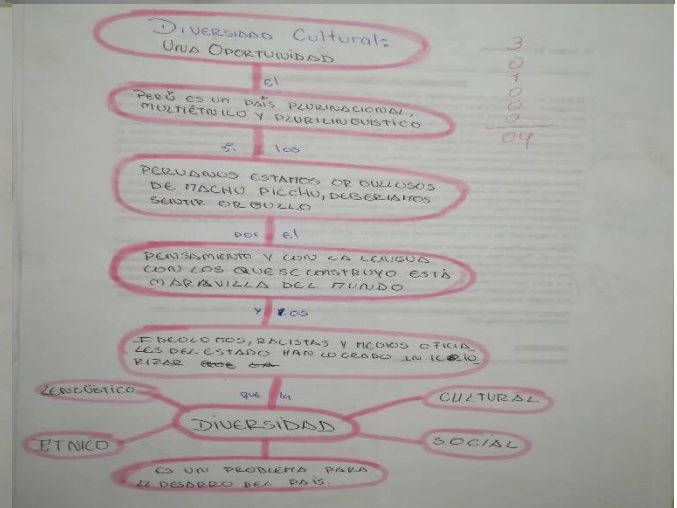 DIVERSIDAD Cultural:
UNA OPORTUNIDAD
El
PERÚ ES UN PAÍS PLURINACIONAL,
MULTIÉTNICO Y PLURILINGUISTICO
Si los
PERUANOS ESTAMOS ORGULLOSOS
DE MACHU PICCHU, DEBERIAMOS
SENTIR ORGULLO
por el
PENSAMIENTO Y CON LA LENGUA
CON LOS QUE SE CONSTRUYO ESTÁ
MARAVILLA DEL MUNDO
Y LOS
RACISTAS Y MEDIOS OFICIA-
LES DEL ESTADO HAN LOGRADO
RIZAR
que la
LENGÜETICO
CULTURAL
DIVERSIDAD
ETNICO
SOCIAL
ES UN PROBLEMA PARA
EL DESARRO DEL PAÍS.
3
0
1
0
0
0
04